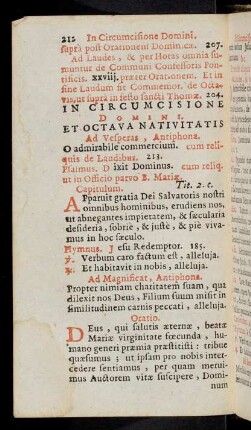 212 In Circumcisione Domini.
suprà post Orationem Dominicæ. 207.
Ad Laudes, & per Horas omnia su-
muntur de Communi Confessoris Pon-
tificis. xxviij. præter Orationem. Et in
fine Laudum fit Commemor. de Octa-
vis, ut suprà in festo sancti Thomæ. 204.
IN CIRCUMCISIONE
DOMINI,
ET OCTAVA NATIVITATIS
Ad Vesperas, Antiphona.
O admirabile commercium. cum reli-
quis de Laudibus. 213.
Psalmus. Dixit Dominus. cum reliq.
ut in Officio parvo B. Mariæ.
Capitulum. Tit. 2. c.
APparuit gratia Dei Salvatoris nostri
omnibus hominibus, erudiens nos,
ut abnegantes impietatem, & sæcularia
desideria, sobriè, & justè, & piè viva-
mus in hoc sæculo.
Hymnus. Jesu Redemptor. 185.
℣. Verbum caro factum est, alleluja.
℟. Et habitavit in nobis, alleluja.
Ad Magnificat, Antiphona.
Propter nimiam charitatem suam, qua
dilexit nos Deus, Filium suum misit in
similitudinem carnis peccati, alleluja.
Oratio.
DEus, qui salutis æternæ, beatæ
Mariæ virginitate fœcunda, hu-
mano generi præmia præstitisti: tribue
quæsumus; ut ipsam pro nobis inter-
cedere sentiamus, per quam merui-
mus Auctorem vitæ suscipere, Domi-
num